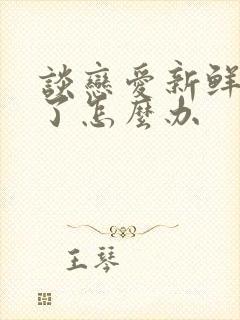 談戀愛新鮮
了怎麼办
王琴